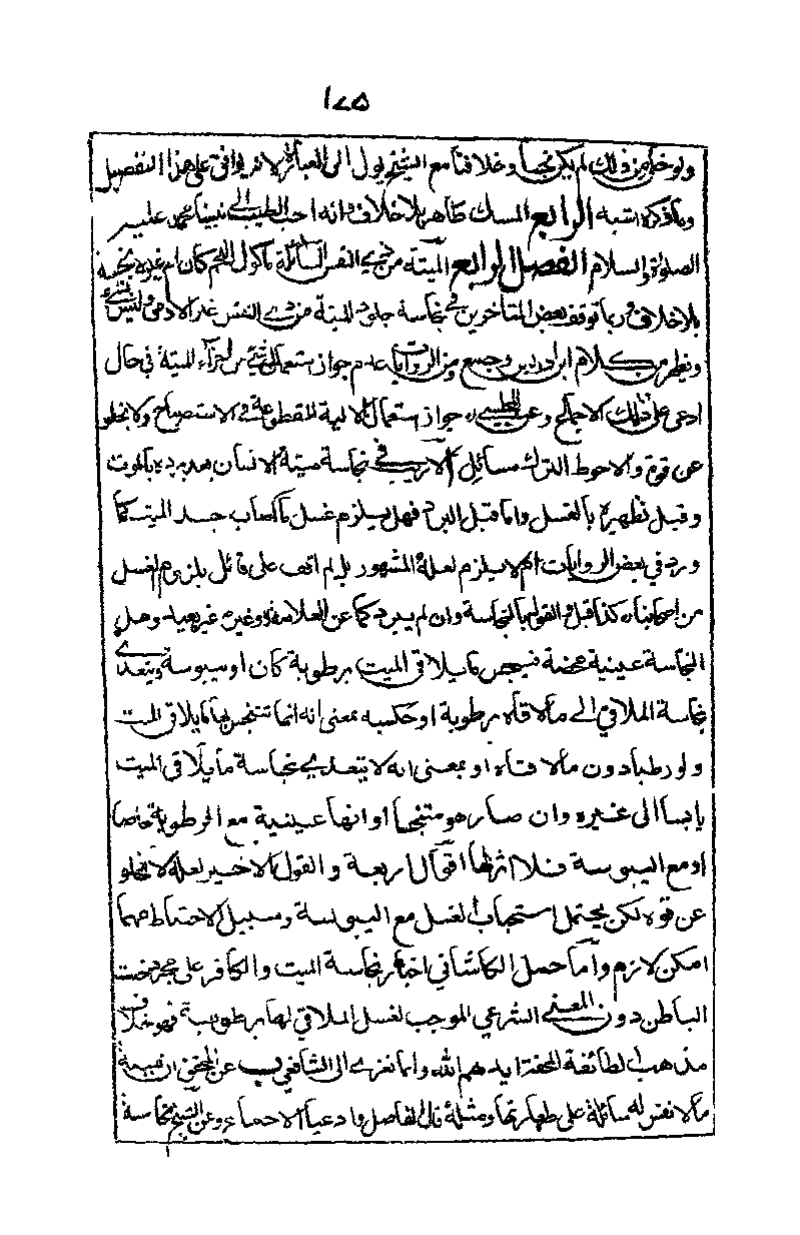 ١٨٥
ولو خلي من ذلك لم يكن نجسا وخلافنا مع الشيخ يول الى العبارة لانه يوافق على هذا التفصيل
وما ذكره اشبه الرابع المسك طاهر بلا خلاف انه احب الطيب الى نبينا محمد عليه
الصلوة والسلام الفصل الرابع الميتة من ذي النفس السائلة مأكول اللحم كان ام غيره نجسة
بلا خلاف وربما توقف بعض المتاخرين في نجاسة جلود الميتة من ذي النفس غير الادمي وليس بشيء
ويظهر من كلام ابن ادريس وجمع ومن الروايات عدم جواز استعمال شيء من اجزاء الميتة في حال
ادعى على ذلك الاجماع وعن المجلسي ره جواز استعمال الالية المقطوعة في الاستصباح ولا يخلو
عن قوة والاحوط الترك مسائل الاولى في نجاسة ميتة الانسان بعد برده بالموت
وقبل تطهيره بالغسل واما قبل البرد فهل يلزم غسل ما اصاب جسد الميت كما
ورد في بعض الروايات ام لا يلزم لعله المشهور بل لم اقف على قائل بلزوم الغسل
من اصحابنا كذا قيل والقول بالنجاسة وان لم يبرد كما عن العلامة وغيره غير بعيد وهل
النجاسة عينية محضة فينجس ما يلاقي الميت برطوبة كان او يبوسة ويتعدى
نجاسة الملاقي الى ما لاقاه برطوبة او حكمية بمعنى انه انما تتنجس بها ما يلاقي الميت
ولو رطبا دون ما لاقاه او بمعنى انه لا يتعدى نجاسة ما يلاقي الميت
يابسا الى غيره وان صار هو متنجسا او انها عينية مع الرطوبة خاصا
او مع اليبوسة فلا اثر لها اقوال اربعة والقول الاخير لعله لا يخلو
عن قوه لكن يحتمل استحباب الغسل مع اليبوسة وسبيل الاحتياط مهما
امكن لازم واما حمل الكاشاني اخبار نجاسة الميت والكافر على مجرد خبث
الباطن دون المعنى الشرعي الموجب لغسل الملاقي لها برطوبة فهو خلاف
مذهب الطائفة المحقة ايدهم الله وانما نعزى الى الشافعي عن المحقق ان ميتة
ما لا نفس له سائلة على طهارتها ومثله قال الفاضل وادعيا الاجماع وعن الشيخ نجاسة